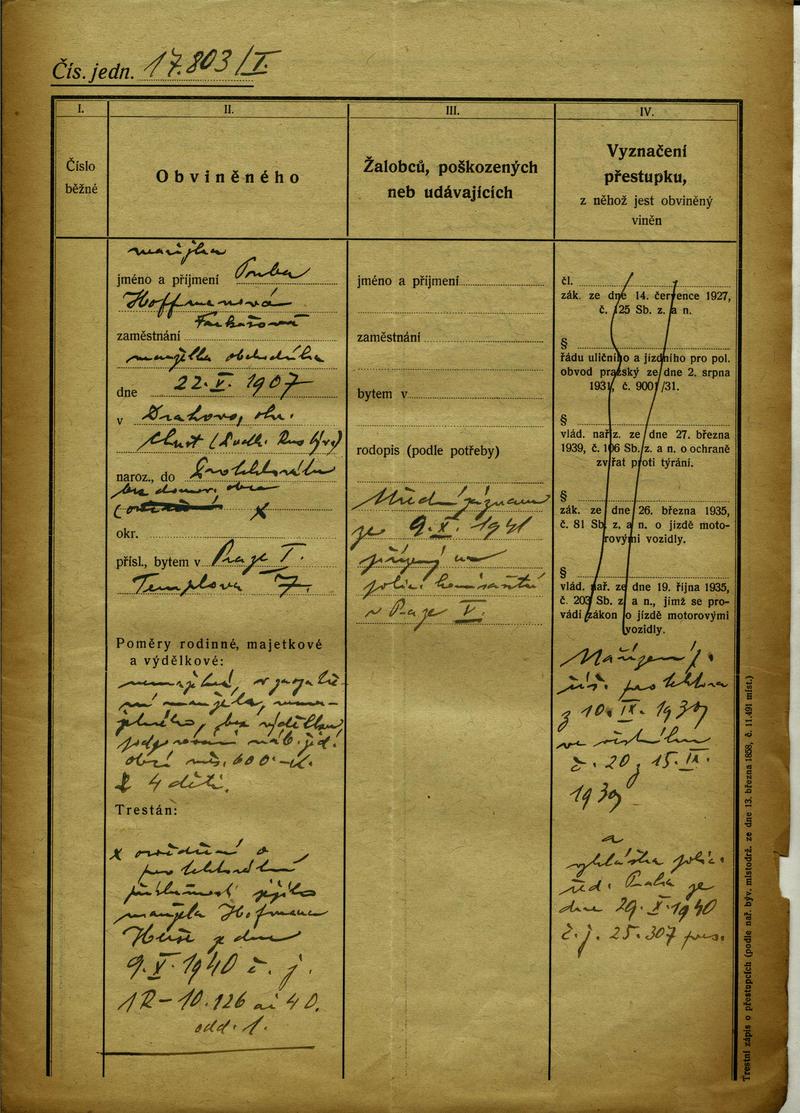 Čís. jedn. 17.803/I.
I.
Číslo
běžné
II.
Obviněného
III.
Žalobců, poškozených
neb udávajících
IV.
Vyznačení
přestupku,
z něhož jest obviněný
viněn
jméno a příjmení
Hoffmanová
zaměstnání
manželka obchodníka
dne 22.V. 1907
v Drahovo, okr.
Chust (Podk. Rus
naroz., do Protektorátu
bez domov. obce
x
okr.
přísl., bytem v Praze I.
Templova 7.
Poměry rodinné, majetkové
a výdělkové:
nemajetná, v
manžela, nema-
jetného, bez výdělku,
podporování náb.
obcí měs. 600·-K.
4 děti.
Trestán:
x osvědčení o
protektorátní
příslušnosti jejího
manžela Hofmana
ze dne
9.V.1940 č. j.
1R-10.126 ai 40.
odd. 1.
jméno a příjmení
zaměstnání
bytem v
rodopis (podle potřeby)
Úřední záznam
ze 9.X. 1941
přijatý na
polic. komisařství
v Praze V.
čl.
zák. ze dne 14. července 1927,
č. 125 Sb. z. a n.
§
řádu uličního a jízdního pro pol.
obvod pražský ze dne 2. srpna
1931, č. 9001/31.
§
vlád. nař z. ze dne 27. března
1939, č. 106 Sb. z. a n. o ochraně
zvířat proti týrání.
§
zák. ze dne 26. března 1935,
č. 81 Sb. z. a n. o jízdě moto-
rovými vozidly.
§
vlád. nař. ze dne 19. října 1935,
č. 203 Sb. z a n., jímž se pro-
vádí zákon o jízdě motorovými
vozidly.
Nařízení
říš. protektora
z 10.IX. 1939
ve věstníku
č. 20 z 15.IX.
1939
a
vyhláška polic.
řed. Praha ze
dne 29.X.1940
č.j. 25.307 pres.
Trestní zápis o přestupcích (podle nař. býv. místodrž. ze dne 13. března 1858, č. 11.491 míst.)